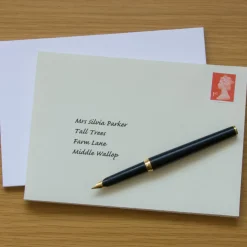 Mrs Silvia Parker
Tall Trees
Farm Lane
Middle Wallop